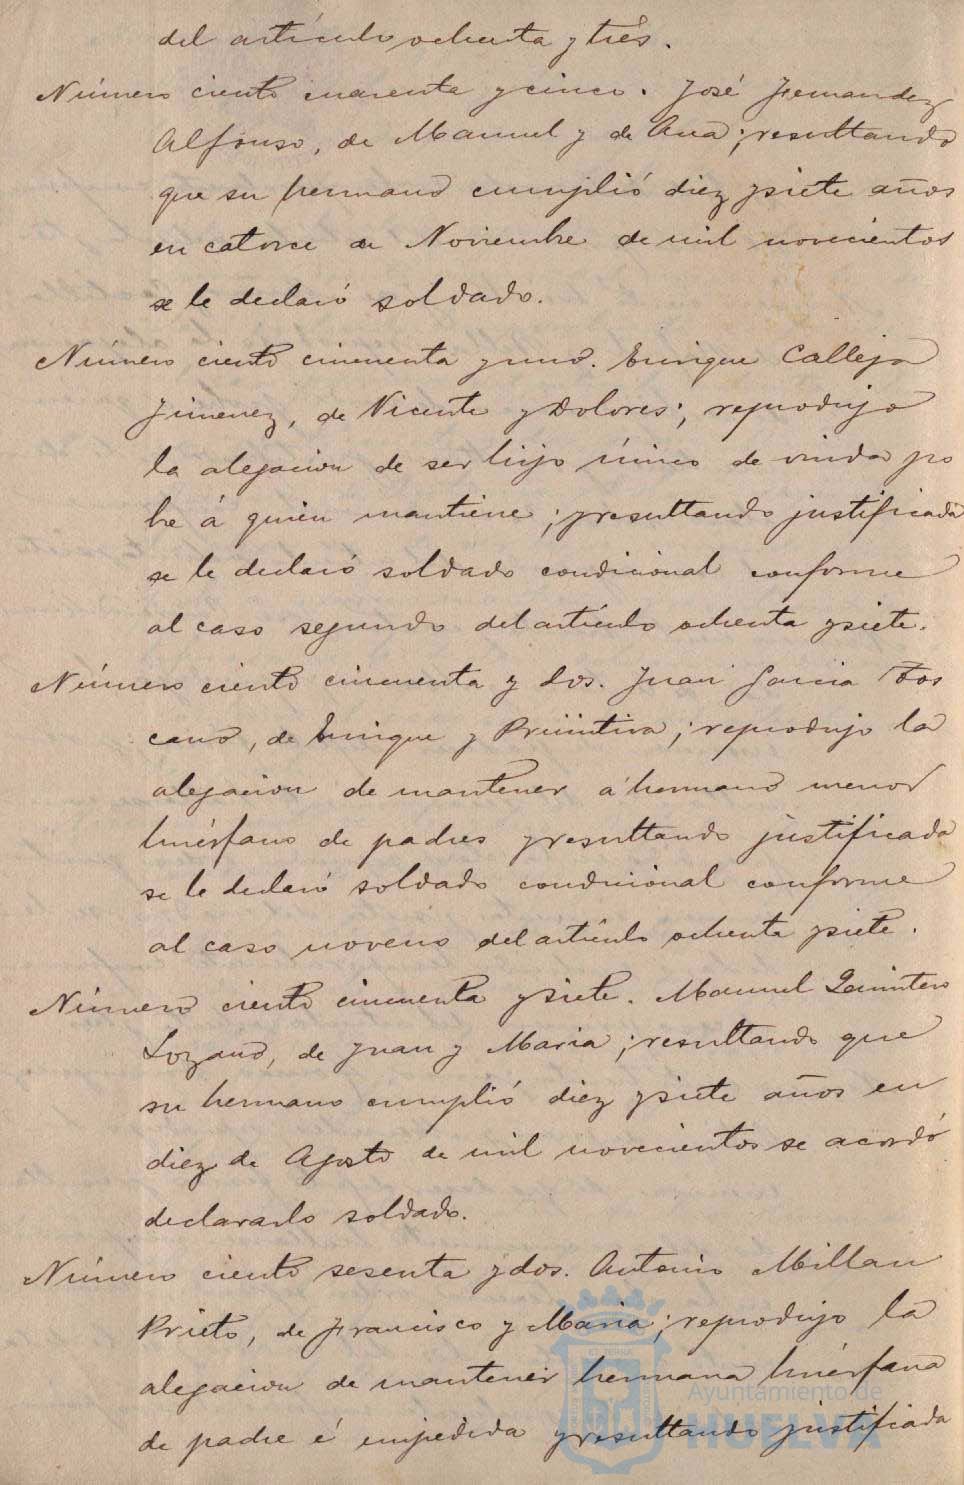 del artículo ochenta y tres.
Número ciento cuarenta y cinco. José Fernandez
Alfonso, de Manuel y de Ana; resultando
que su hermano cumplió diez y siete años
en catorce de Noviembre de mil novecientos
se le declaró soldado.
Número ciento cincuenta y uno. Enrique Calleja
Jimenez, de Vicente y Dolores; reprodujo
la alegacion de ser hijo único de viuda po
bre á quien mantiene; y resultando justificada
se le declaró soldado condicional conforme
al caso segundo del artículo ochenta y siete.
Número ciento cincuenta y dos. Juan Garcia Tos
cano, de Enrique y Primitiva; reprodujo la
alegacion de mantener á hermano menor
huérfano de padres y resultando justificada
se le declaró soldado condicional conforme
al caso noveno del artículo ochenta y siete.
Número ciento cincuenta y siete. Manuel Quintero
Lozano, de Juan y Maria; resultando que
su hermano cumplió diez y siete años en
diez de Agosto de mil novecientos se acordó
declararlo soldado.
Número ciento sesenta y dos. Antonio Millan
Prieto, de Francisco y Maria; reprodujo la
alegacion de mantener hermana huérfana
de padre é impedida y resultando justificada
Ayuntamiento de
HUELVA